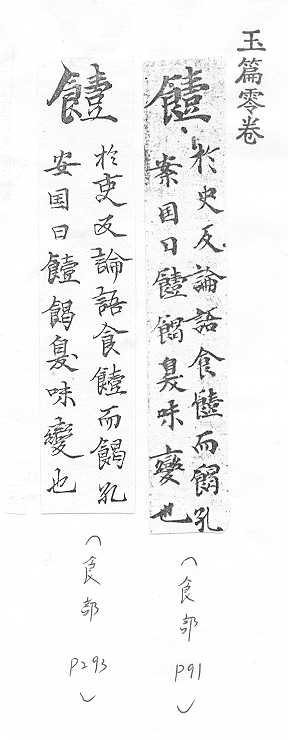 玉篇零卷
饐
於史反論語食饐而餲孔
案国曰饐餲臭味變也
(食部 P91)
饐
於吏反論語食饐而餲孔
安国曰饐餲臭味變也
(食部 P293)